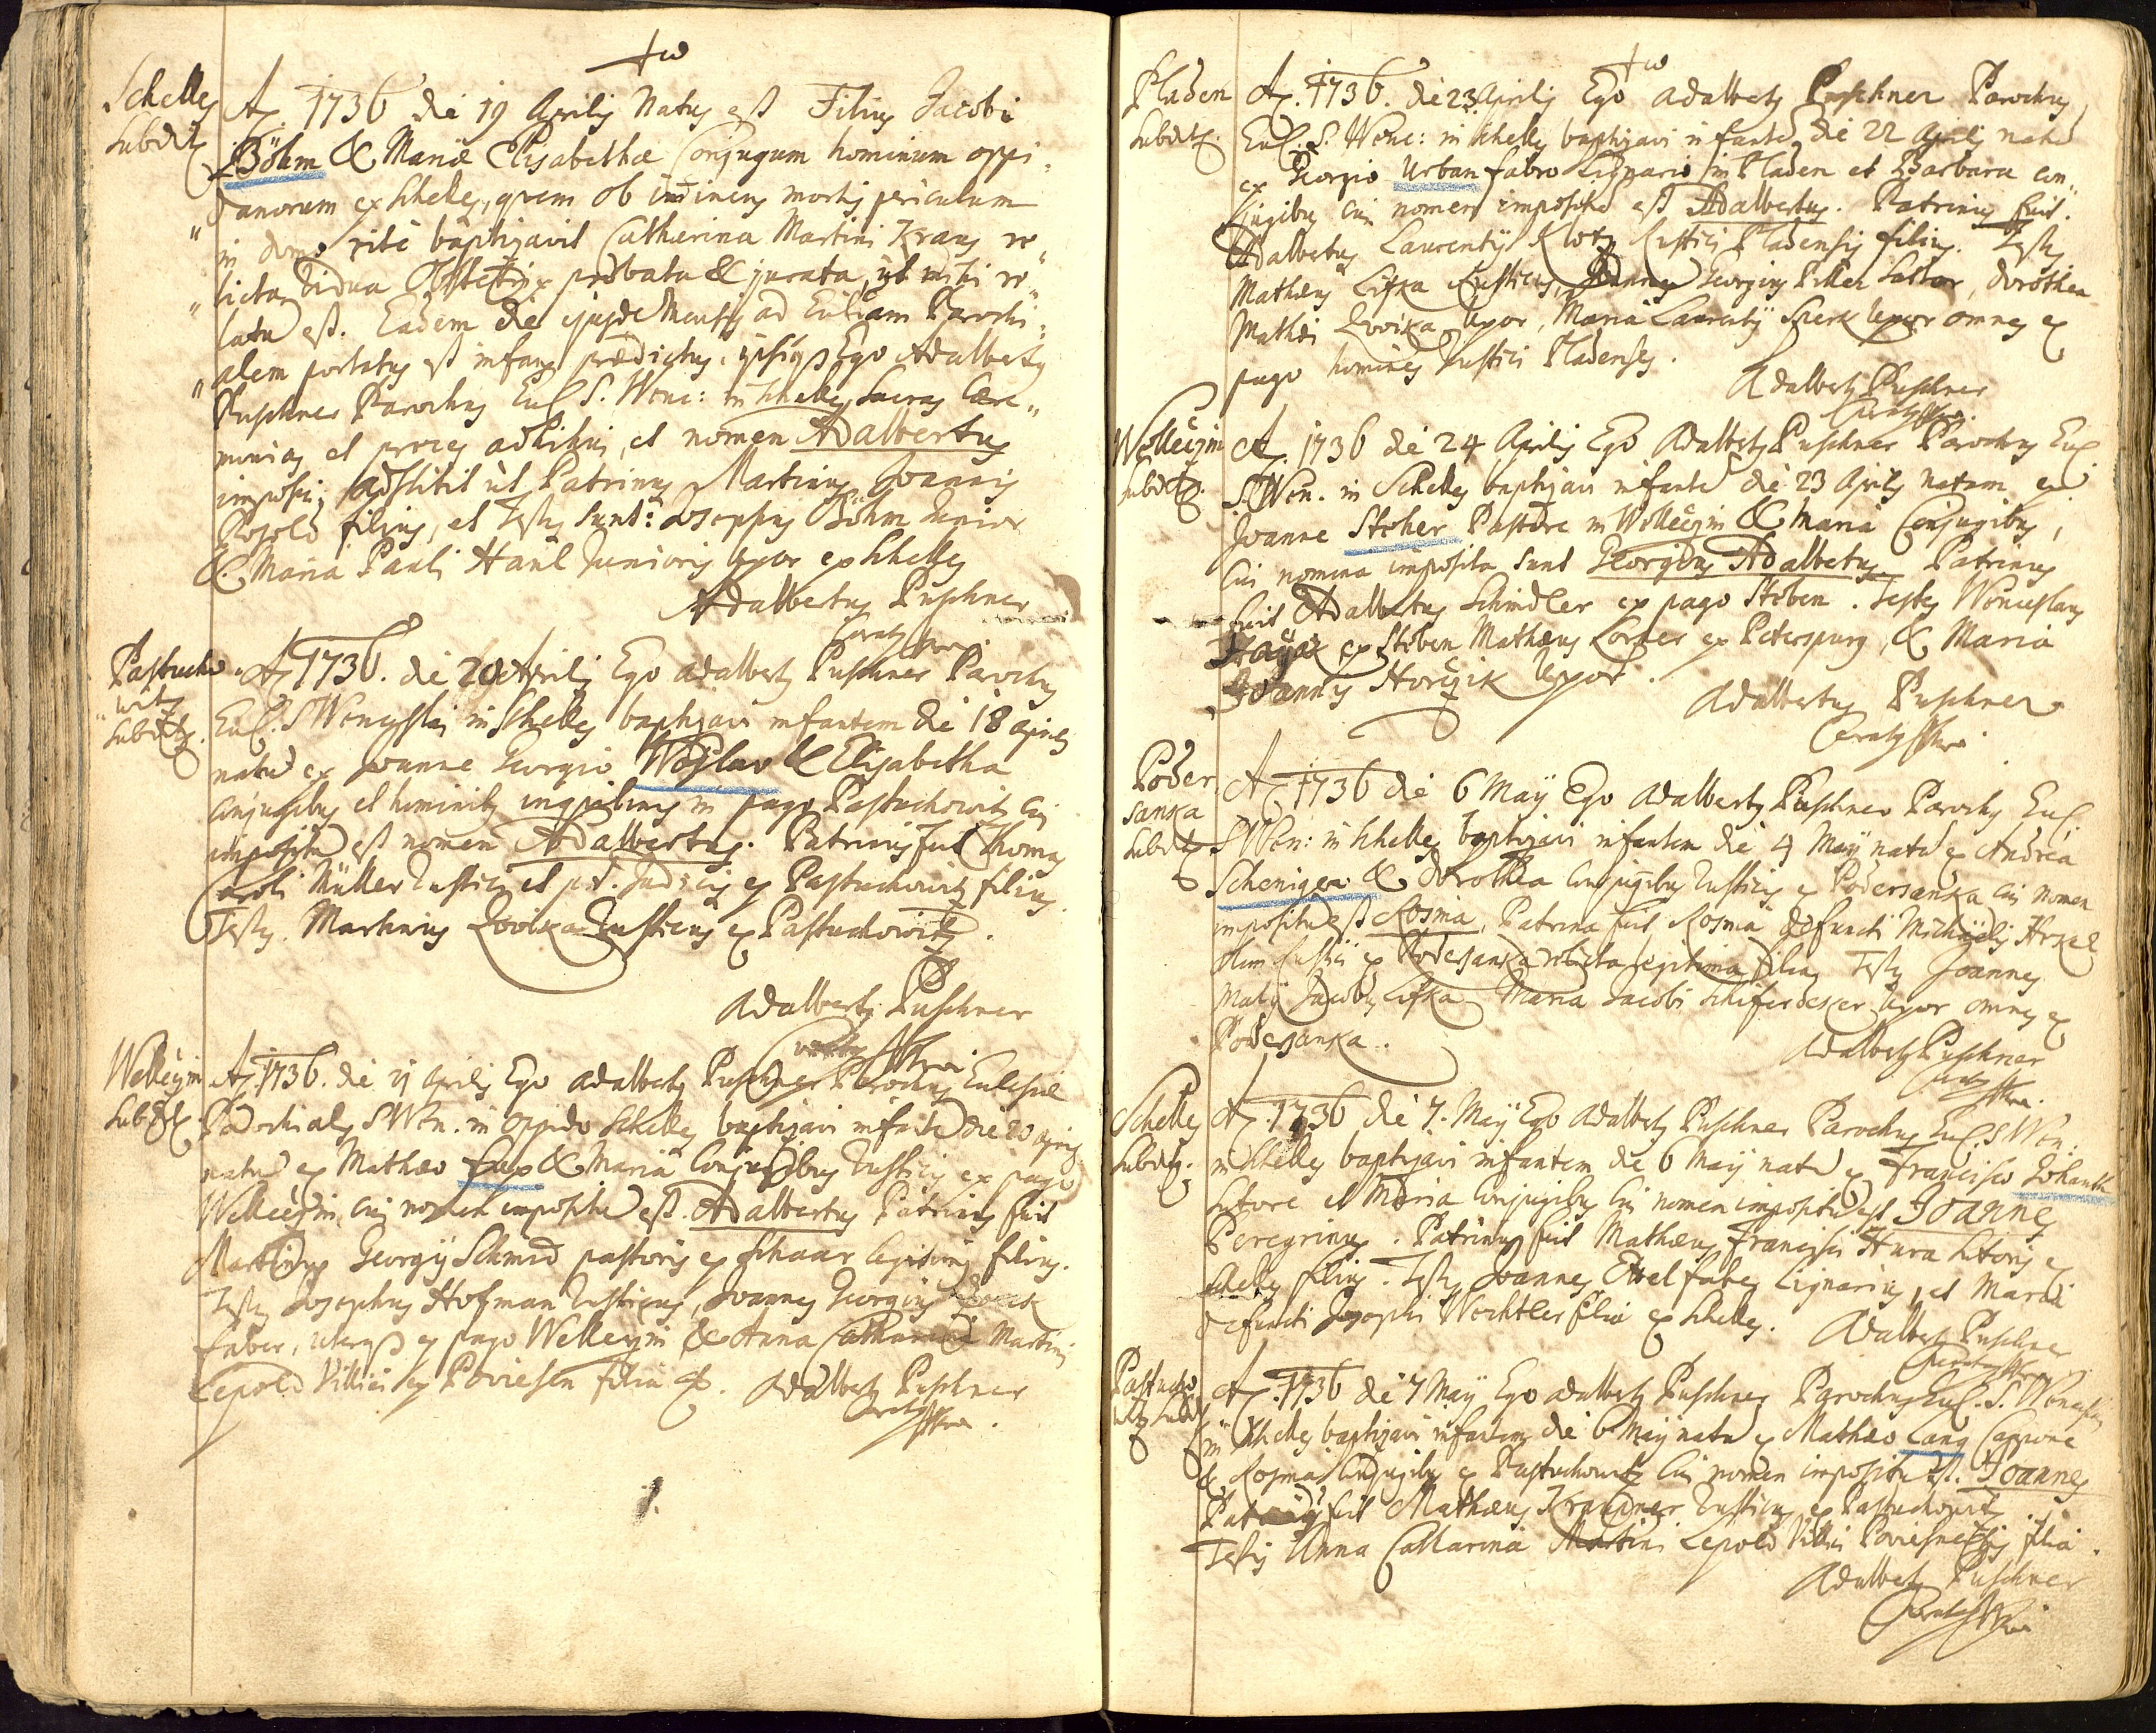 Schelles
Subdit9
A9 1736 die 19 Aprilis Natus est Filius Jacobi
Böhm & Mariæ Elisabethæ Conjugum hominum oppi„
„danorum ex Schelles, quem ob iminens mortis periculum
in domo rite baptizavit Catharina Martini Kraus re„
„licta Vidua Obstetrix probata & jurata, ut mihi re„
latu est. Eadem die ejusdem Mensis ad Eccl͠iam Parochi„
„alem portatus est infans prædictus, ipsiqs Ego Adalbertus
Puschner Parochus Eccl. S. Wenc: in Schelles Sacras Cære„
monias et preces adhibui, et nomen Adalbertus
imposui, adstitit ut Patrinus Martinus Joannis
Posold filius, et Testes sunt: Josephus Böhm Junior
& Maria Pauli Hanl Junioris Uxor ex Schelles
Adalbertus Puschner
Curatus
Pastucho„
„witz
Subdit9.
A9 1736. die 20 Aprilis Ego Adalbertus Puschner Parochus
Eccl. S Wenceslai in Schelles baptizavi infantem die 18 Aprilis
natu ex Joanne Georgio Woslav & Elisabetha
Conjugibus et hominibus inquilinis in pago Pastuchowitz cui
impositu est nomen Adalbertus. Patrinus fuit Thomas
Caroli Müller Rustici et p.t. Judicis ex Pastuchowitz filius.
Testes Martinus Zvoiska Rusticus ex Pastuchowitz.
Adalbertus Puschner
Curatus
Wellečzin
Subdit9
A9. 1736. die 21 Aprilis Ego Adalbertus Puschner Parochus Ecclesiæ
Parochialis S Wen. in oppido Schelles baptizavi infante die 20 Aprilis
natu ex Mathæo Fux & Maria Conjugibus Rusticis ex pago
Wellečzin, cui nomen impositu est Adalbertus Patrinus fuit
Martinus Georgij Schmid pastoris ex Schaar legitimus filius.
Testes Josephus Hofman Rusticus, Joannes Georgius
faber, uterqs ex pago Wellečzin & Anna Catharina Martini
Lepold Villici ex Poviesen filia &. Adalbertus Puschner
Curatus
Pladen
Subdit9.
A9. 1736. die 23 Aprilis Ego Adalbertus Puschner Parochus
Eccl. S. Wenc: in Schelles baptizavi infante die 22 Aprilis natu
ex Georgio Urban fabro Lignario in Pladen et Barbara con„
jugibus cui nomen impositu est Adalbertus. Patrinus fuit
Adalbertus Laurentij Klotz Rustici Pladensis filius. Testes
Mathæus Lifka Rusticus, Joannes Georgius Piller Sartor, Dorothea
Mathæi Zvoiska Uxor, Maria Laurentij Sperk Uxor omnes ex
pago homines Rustici Pladenses.
Adalbertus Puschner
Curatus
Wellečzin
Subdit9.
A9. 1736 die 24 Aprilis Ego Adalbertus Puschner Parochus Eccl
S Wen. in Schelles baptizavi infante die 23 Aprilis natum ex
Joanne Stoher Pastore in Wellečzin & Maria Conjugibus,
Cui nomina imposita sunt Georgius Adalbertus Patrinus
fuit Adalbertus Schindler ex pago Stöben. Testes Wenceslaus
ex Stöben Mathæus Lorber ex Peterspurg, & Maria
Joannis Horčzik Uxor.
Adalbertus Puschner
Curatus
Poder
sanka
Subdit9
A9 1736 die 6 Maij Ego Adalbertus Puschner Parochus Eccl.
S Wen: in Schelles baptizavi infantem die 4 Maij natu ex Andrea
Scheniger & Dorothea Conjugibus Rusticis ex Podersanka cui nomen
impositu est Rosina, Patrina fuit Rosina defuncti Michaelis
olim Rustici ex Podersanka relicta legitima filia, Testes Joannes
Maly Jacobus Lifka Maria Jacobi Schiferdeker Uxor omnes ex
Podersanka.
Adalbertus Puschner
Curatus
Schelles
Subdit9.
A9. 1736 die 7. Maij Ego Adalbertus Puschner Parochus Eccl. S Wen.
in Schelles baptizavi infantem die 6 Maij natu ex Francisco
Sutore et Maria Conjugibus cui nomen impositu est Joannes
Peregrinus. Patrinus fuit Mathæus Francisci Hura Sutoris ex
Schelles filius. Testes Joannes Etzel faber Lignarius, et Maria
defuncti Josephi Wochtler filia ex Schelles.
Adalbertus Puschner
Curatus
Pastucho
witz Subd
A9. 1736 die 7 Maij Ego Adalbertus Puschner Parochus Eccl. S. Wenceslai
in Schelles baptizavi infantem die 6 Maij natu ex Mathæo Lang Caupone
& Rosina Conjugibus ex Pastuchowitz cui nomen impositu est. Joannes
Patrinus fuit Mathæus Rusticus ex Pastuchowitz
Testes Anna Catharina Martini Lepold Villici Poviesnensis filia.
Adalbertus Puschner
Curatus